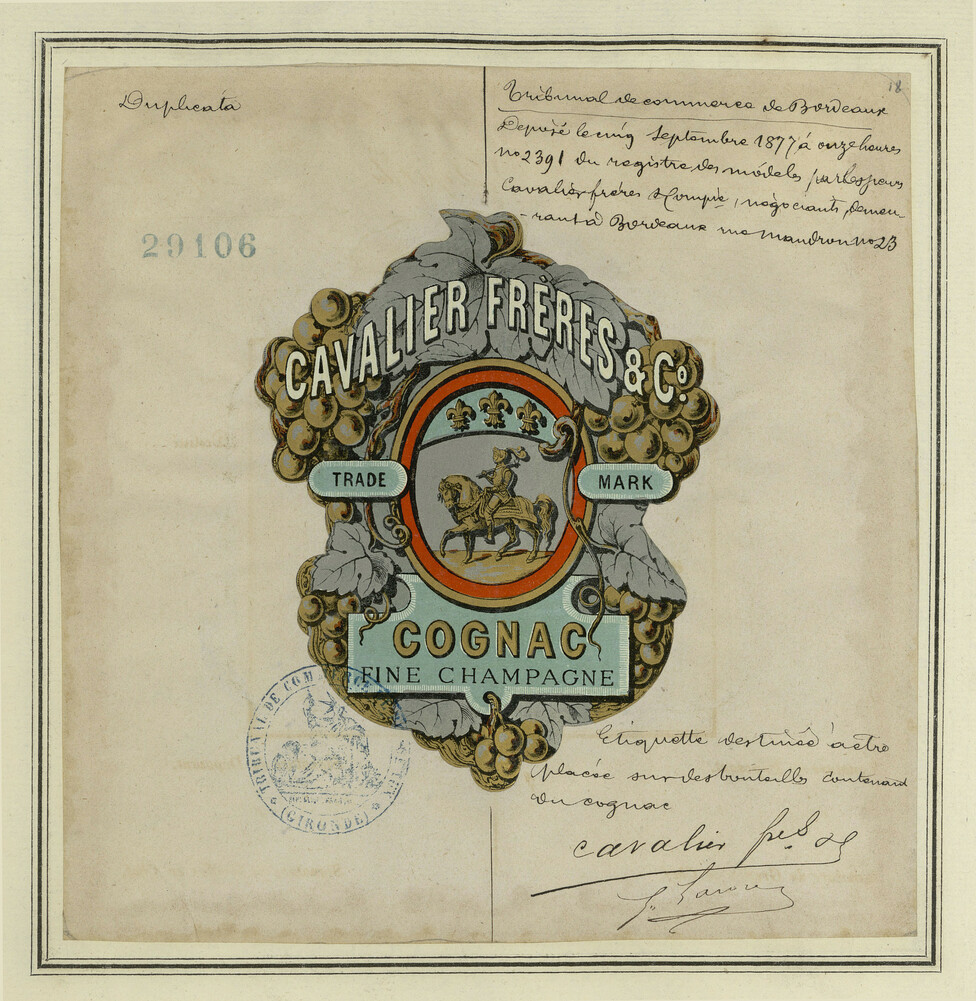 Duplicata
18
Tribunal de commerce de Bordeaux
Déposé le cinq Septembre 1877 à onze heures
no 2391 du registre des modèles par les sieurs
Cavalier frères & Compie, négociants, demeu-
-rant à Bordeaux rue Mandron no 23
29106
CAVALIER FRÈRES & Co.
TRADE MARK
COGNAC
FINE CHAMPAGNE
TRIBUNAL DE COMMERCE
(GIRONDE)
Etiquette destinée à être
placée sur des bouteilles contenant
du cognac
Cavalier fres &